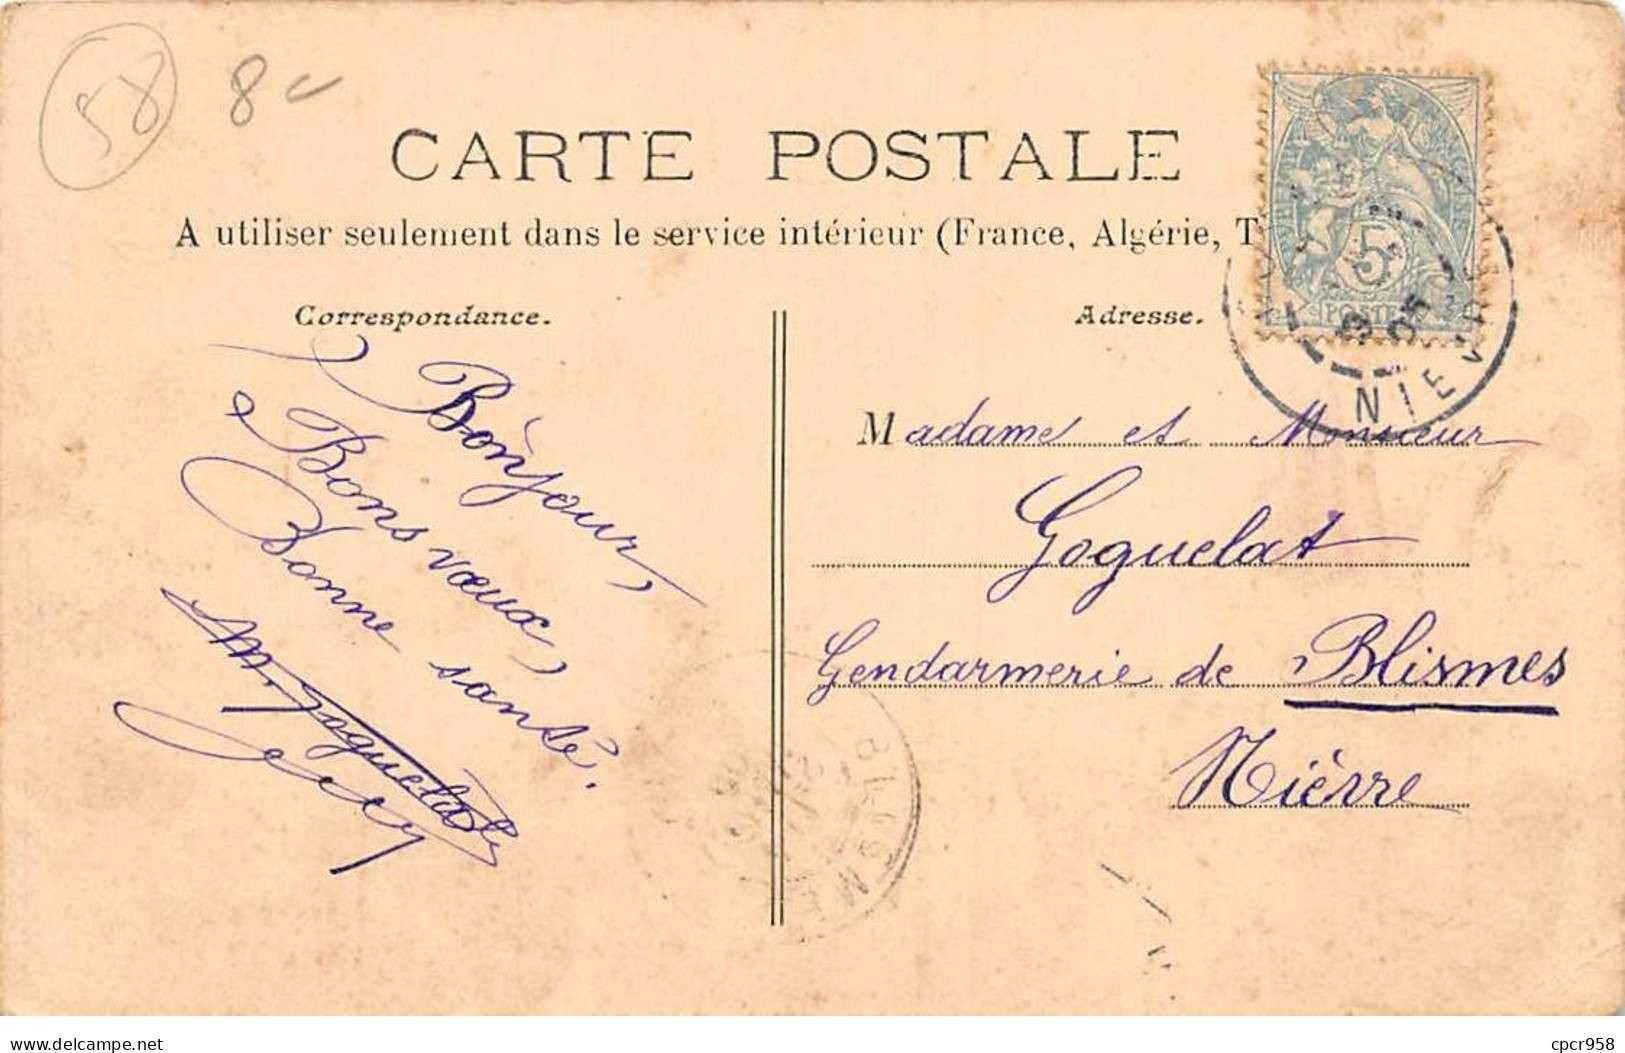 58 8
CARTE POSTALE
A utiliser seulement dans le service intérieur (France, Algérie, T
Correspondance.
Bonjour,
Bons vœux,
Bonne santé.
M. Goguelat
Adresse.
Madame et Monsieur
Goguelat
Gendarmerie de Blismes
Nièvre
5
POSTES
NIEVRE
delcampe.net
cpcr958